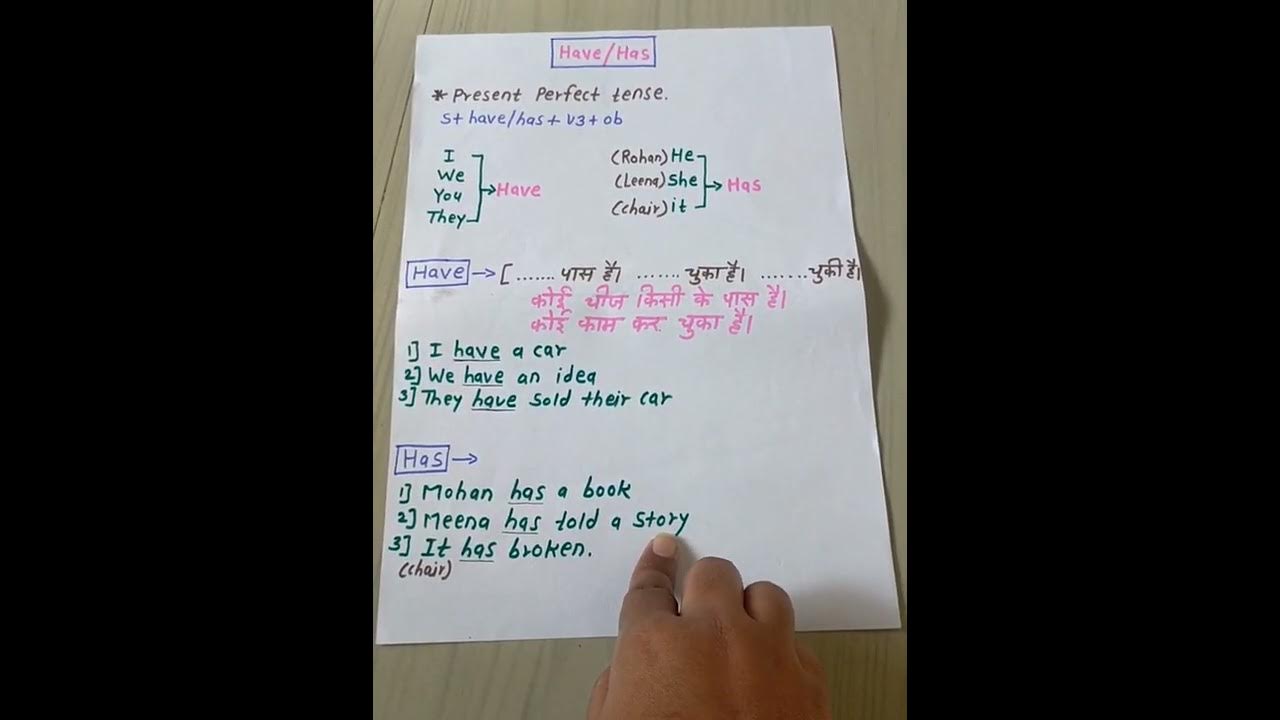 Have/Has
* Present Perfect tense.
S+ have/has + V3 + ob
I
We
You
They
Have
(Rohan) He
(Leena) She
(chair) it
Has
Have → [ ....... पास है। ....... चुका है। ....... चुकी है।
कोई चीज किसी के पास है।
कोई काम कर चुका है।
1] I have a car
2] We have an idea
3] They have sold their car
Has →
1] Mohan has a book
2] Meena has told a story
3] It has broken.
(chair)